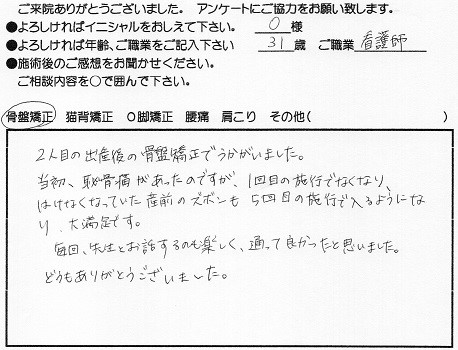 ご来院ありがとうございました。 アンケートにご協力をお願い致します。
●よろしければイニシャルをおしえて下さい。 O 様
●よろしければ年齢、ご職業をご記入下さい 31 歳 ご職業 看護師
●施術後のご感想をお聞かせください。
ご相談内容を○で囲んで下さい。
骨盤矯正 猫背矯正 O脚矯正 腰痛 肩こり その他( )
2人目の出産後の骨盤矯正でうかがいました。
当初、恥骨痛があったのですが、1回目の施行でなくなり、
はけなくなっていた産前のズボンも 5回目の施行で入るようにな
り、大満足です。
毎回、先生とお話するのも楽しく、通って良かったと思いました。
どうもありがとうございました。